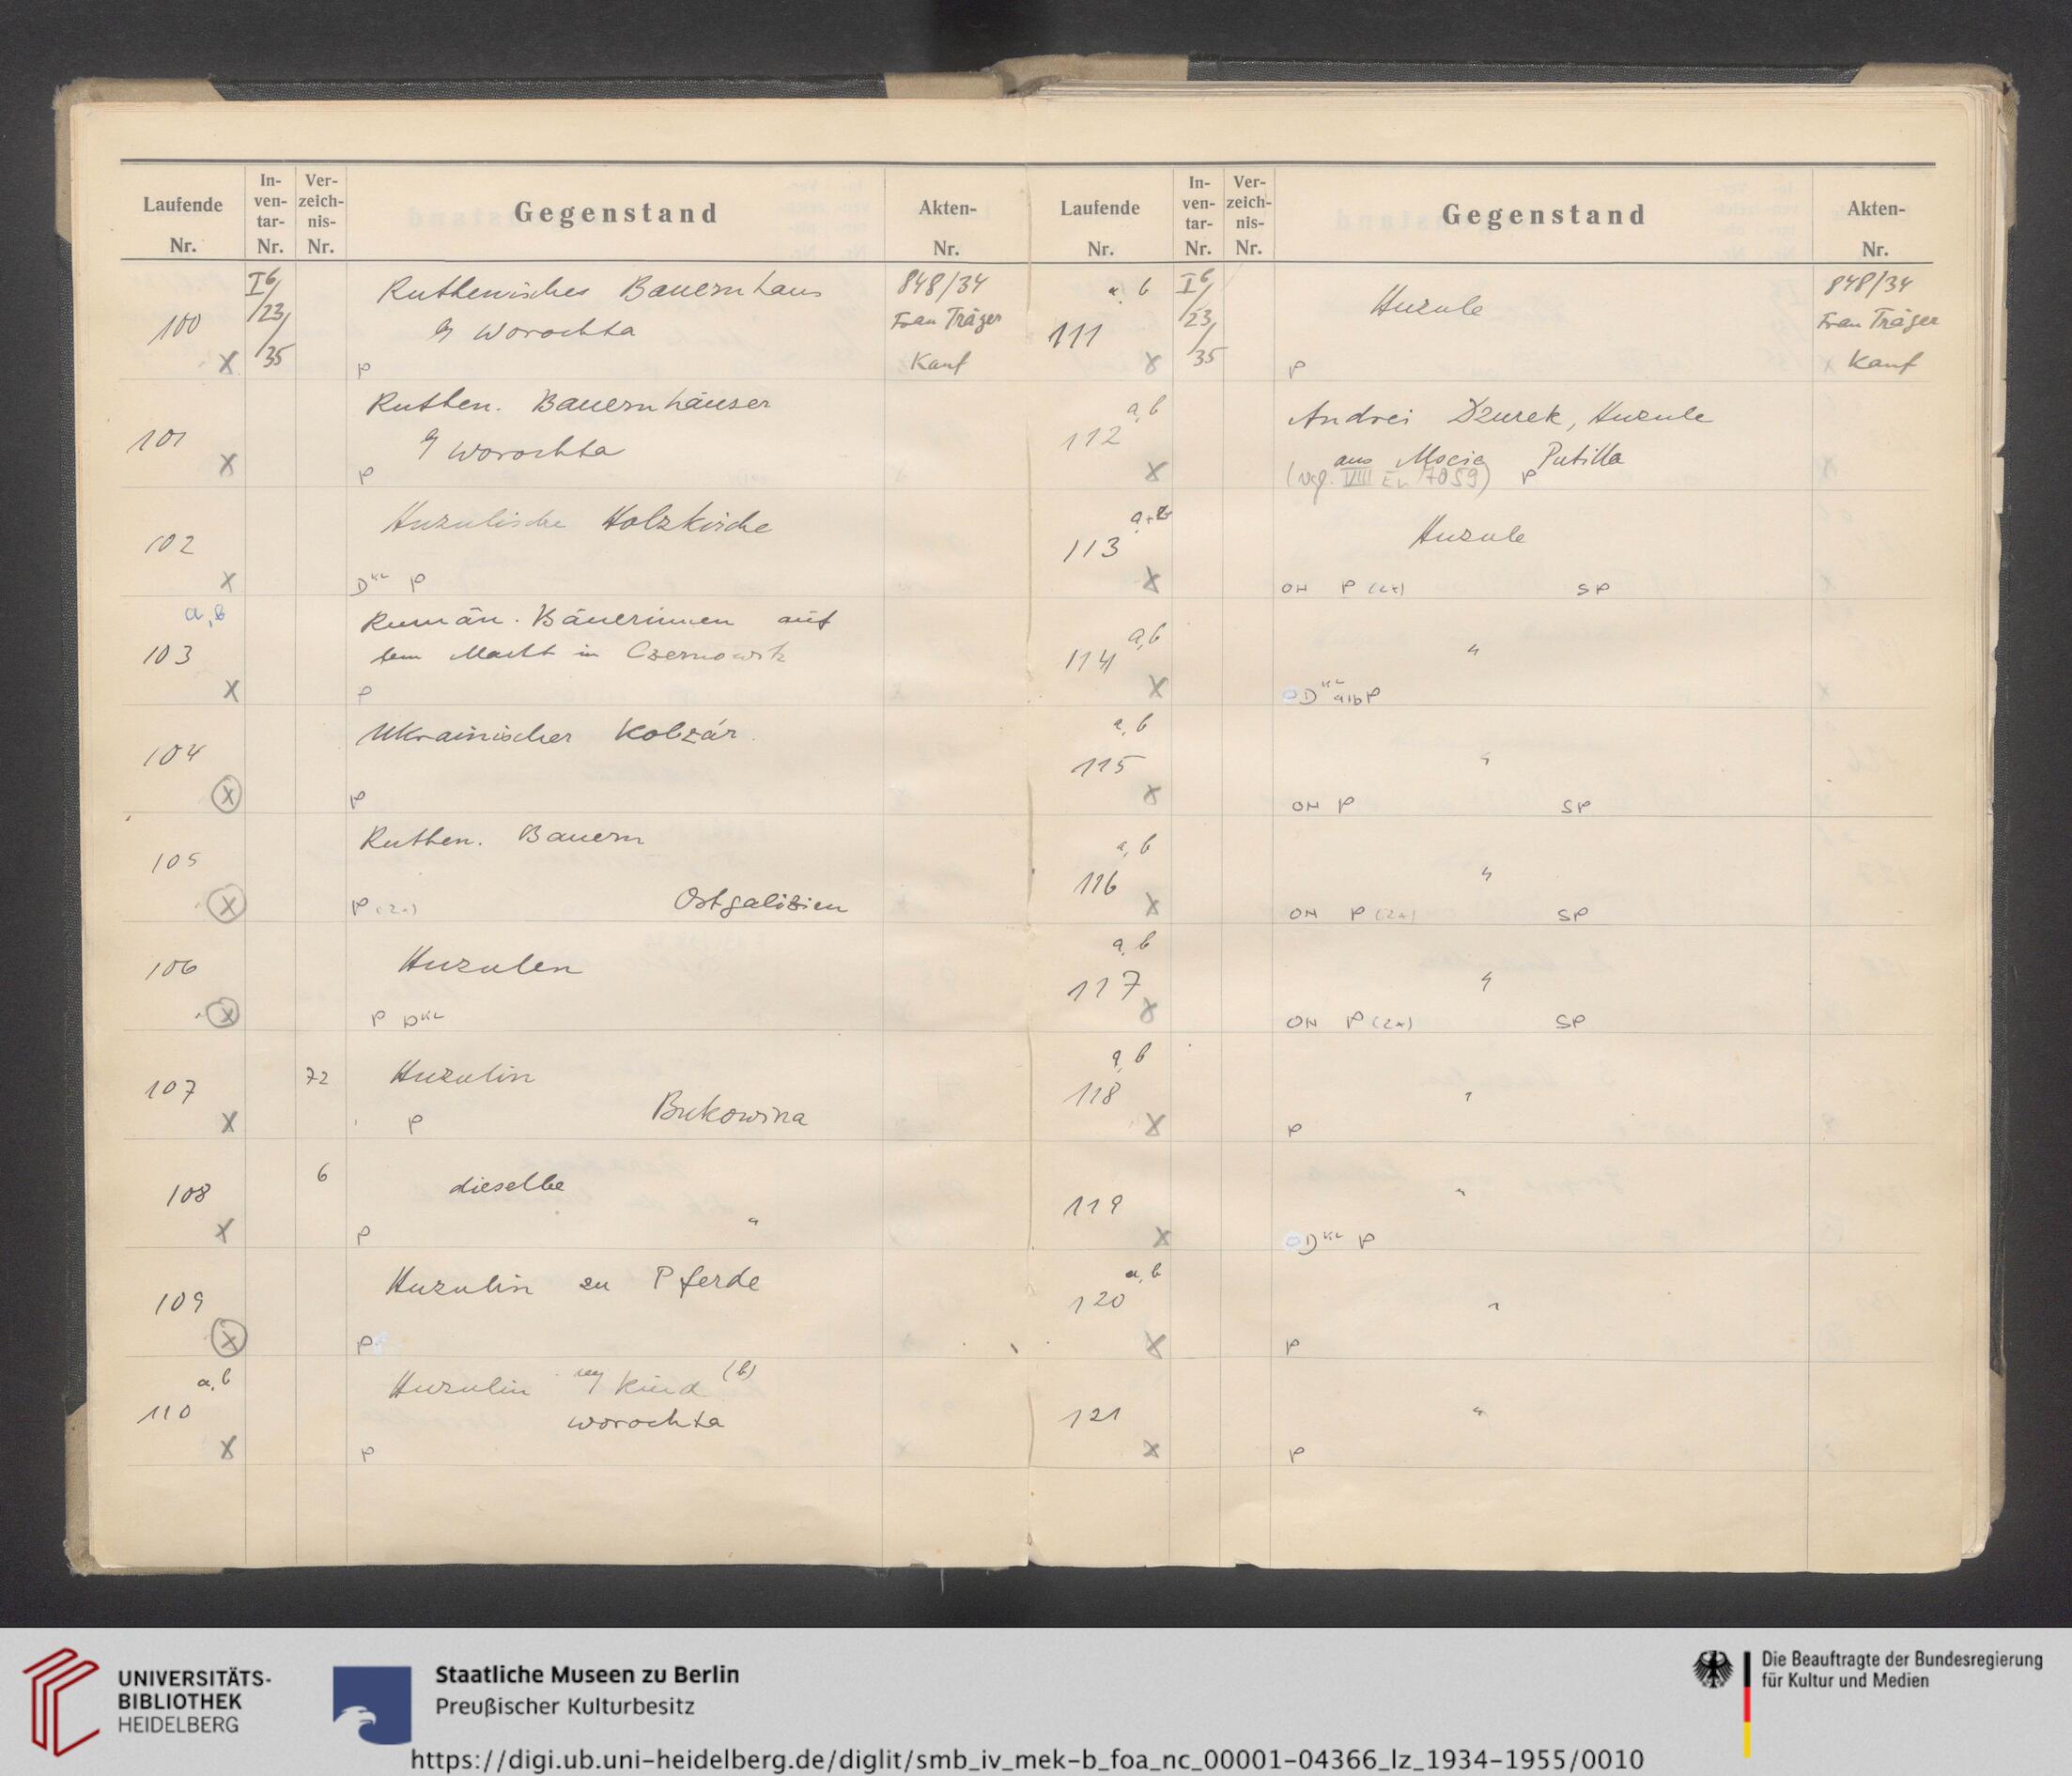 Laufende Nr.
In-ven-tar-Nr.
Ver-zeich-nis-Nr.
Gegenstand
Akten-Nr.
I6/23/35
Ruthenisches Bauernhaus
848/34
100
Worochta
Frau Träger
X
P
Kauf
Ruthen. Bauernhäuser
101
Worochta
X
P
Huzulische Holzkirche
102
X
DKL P
a, b
Rumän. Bäuerinnen auf
103
dem Markt in Czernowitz
X
P
Ukrainischer Kobzár.
104
X
P
Ruthen. Bauern
105
X
P (2x)
Ostgalizien
106
Huzulen
X
P DKL
107
72
Huzulin
Bukowina
X
P
108
6
dieselbe
"
X
P
109
Huzulin zu Pferde
X
P
a, b
Huzulin Kind (b)
110
Worochta
X
P
Laufende Nr.
In-ven-tar-Nr.
Ver-zeich-nis-Nr.
Gegenstand
Akten-Nr.
a, b
I6/23/35
Huzule
848/34
111
Frau Träger
X
P
Kauf
a, b
Andrei Dzurek, Huzule
112
aus Putilla
X
(vgl. VIII Eu 7059) P
a+b
Huzule
113
X
ON P (2x) SP
a, b
114
"
X
OD KL a+b P
a, b
115
"
X
ON P SP
a, b
116
"
X
ON P (2x) SP
a, b
117
"
X
ON P (2x) SP
a, b
118
"
X
P
119
"
X
OD KL P
a, b
120
"
X
P
121
"
X
P
UNIVERSITÄTS-
BIBLIOTHEK
HEIDELBERG
Staatliche Museen zu Berlin
Preußischer Kulturbesitz
Die Beauftragte der Bundesregierung
für Kultur und Medien
https://digi.ub.uni-heidelberg.de/diglit/smb_iv_mek-b_foa_nc_00001-04366_lz_1934-1955/0010